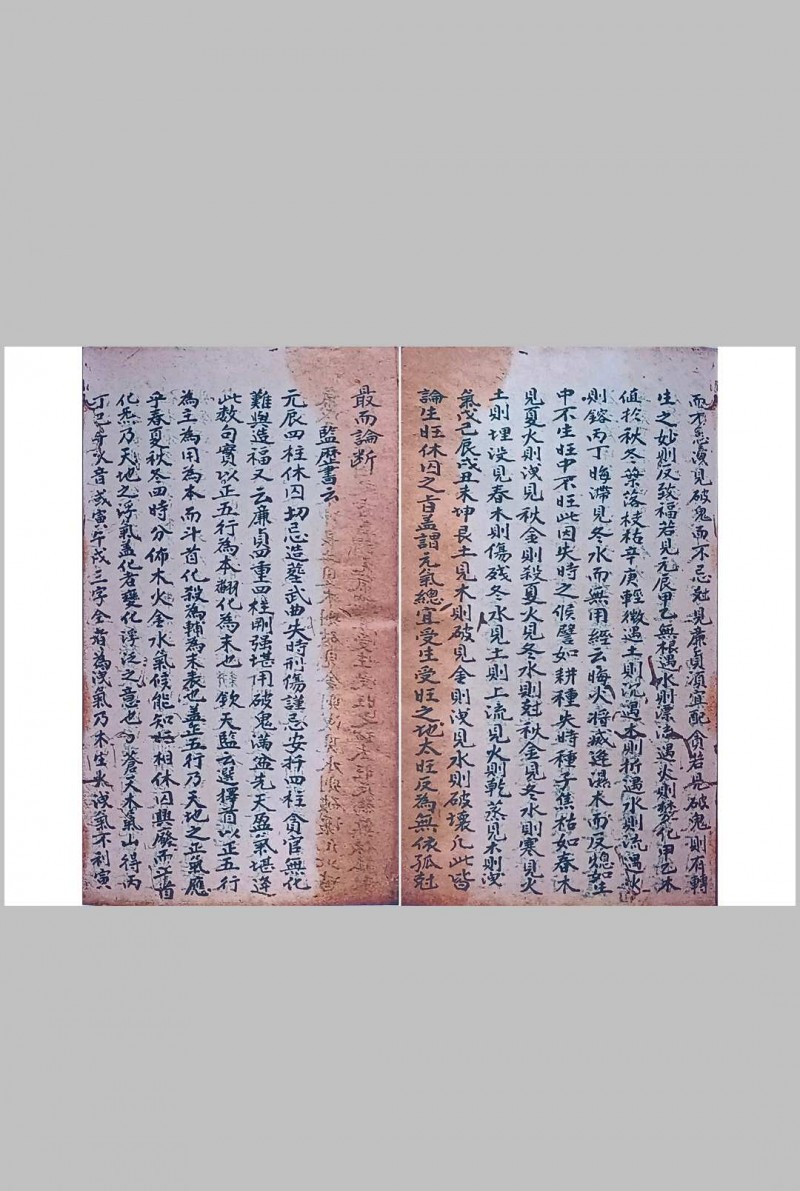 而不忌洩見破鬼而不忌尅見廉貞須宜配貪若見破鬼則有轉
生之妙則反致福若見元辰甲乙無根遇水則漂流遇火則焚化甲乙木
值於秋冬葉落枝枯辛庚輕微遇土則沉遇木則折遇水則流遇火
則鎔丙丁晦滯見冬水而無用經云晦火將滅逢濕木而反熄如生
中不生旺中不旺此因失時之候譬如耕種失時種子焦枯如春木
見夏火則洩見秋金則殺夏火見冬水則尅秋金見冬水則寒見火
土則埋没見春木則傷残冬水見土則上流見火則乾蒸見木則洩
氣戊己辰戌丑未坤艮土見木則破見金則洩見水則破壞凢此皆
論生旺休囚之旨盖謂元氣總宜受生受旺之地太旺反為無依孤尅
最而論断
監歷書云
元辰四柱休囚切忌造塟武曲失時刑傷謹忌安拆四柱貪官無化
難與造福又云廉貞四重四柱剛强堪用破鬼滿盤先天盈氣堪逢
此数句實以正五行為本翻化為末也欽天監云選擇首以正五行
為主為用為本而斗首化殺為輔為末表也盖正五行乃天地之正氣應
乎春夏秋冬四時分佈木火金水氣候能知
相休囚興廢而斗首
化炁乃天地之浮氣盖化者變化浮泛之意也乃蒼天木氣山得丙
丁巳午火音或寅午戌三字全者為洩氣乃木生火洩氣不利寅